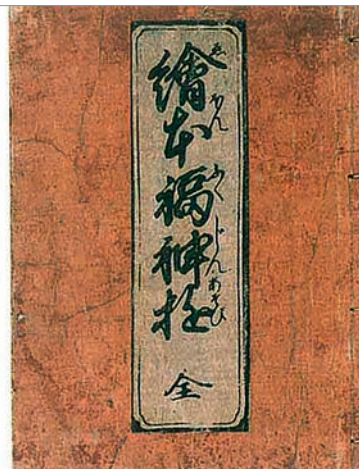 繪本福神遊 全
ゑほんふくじんあそび